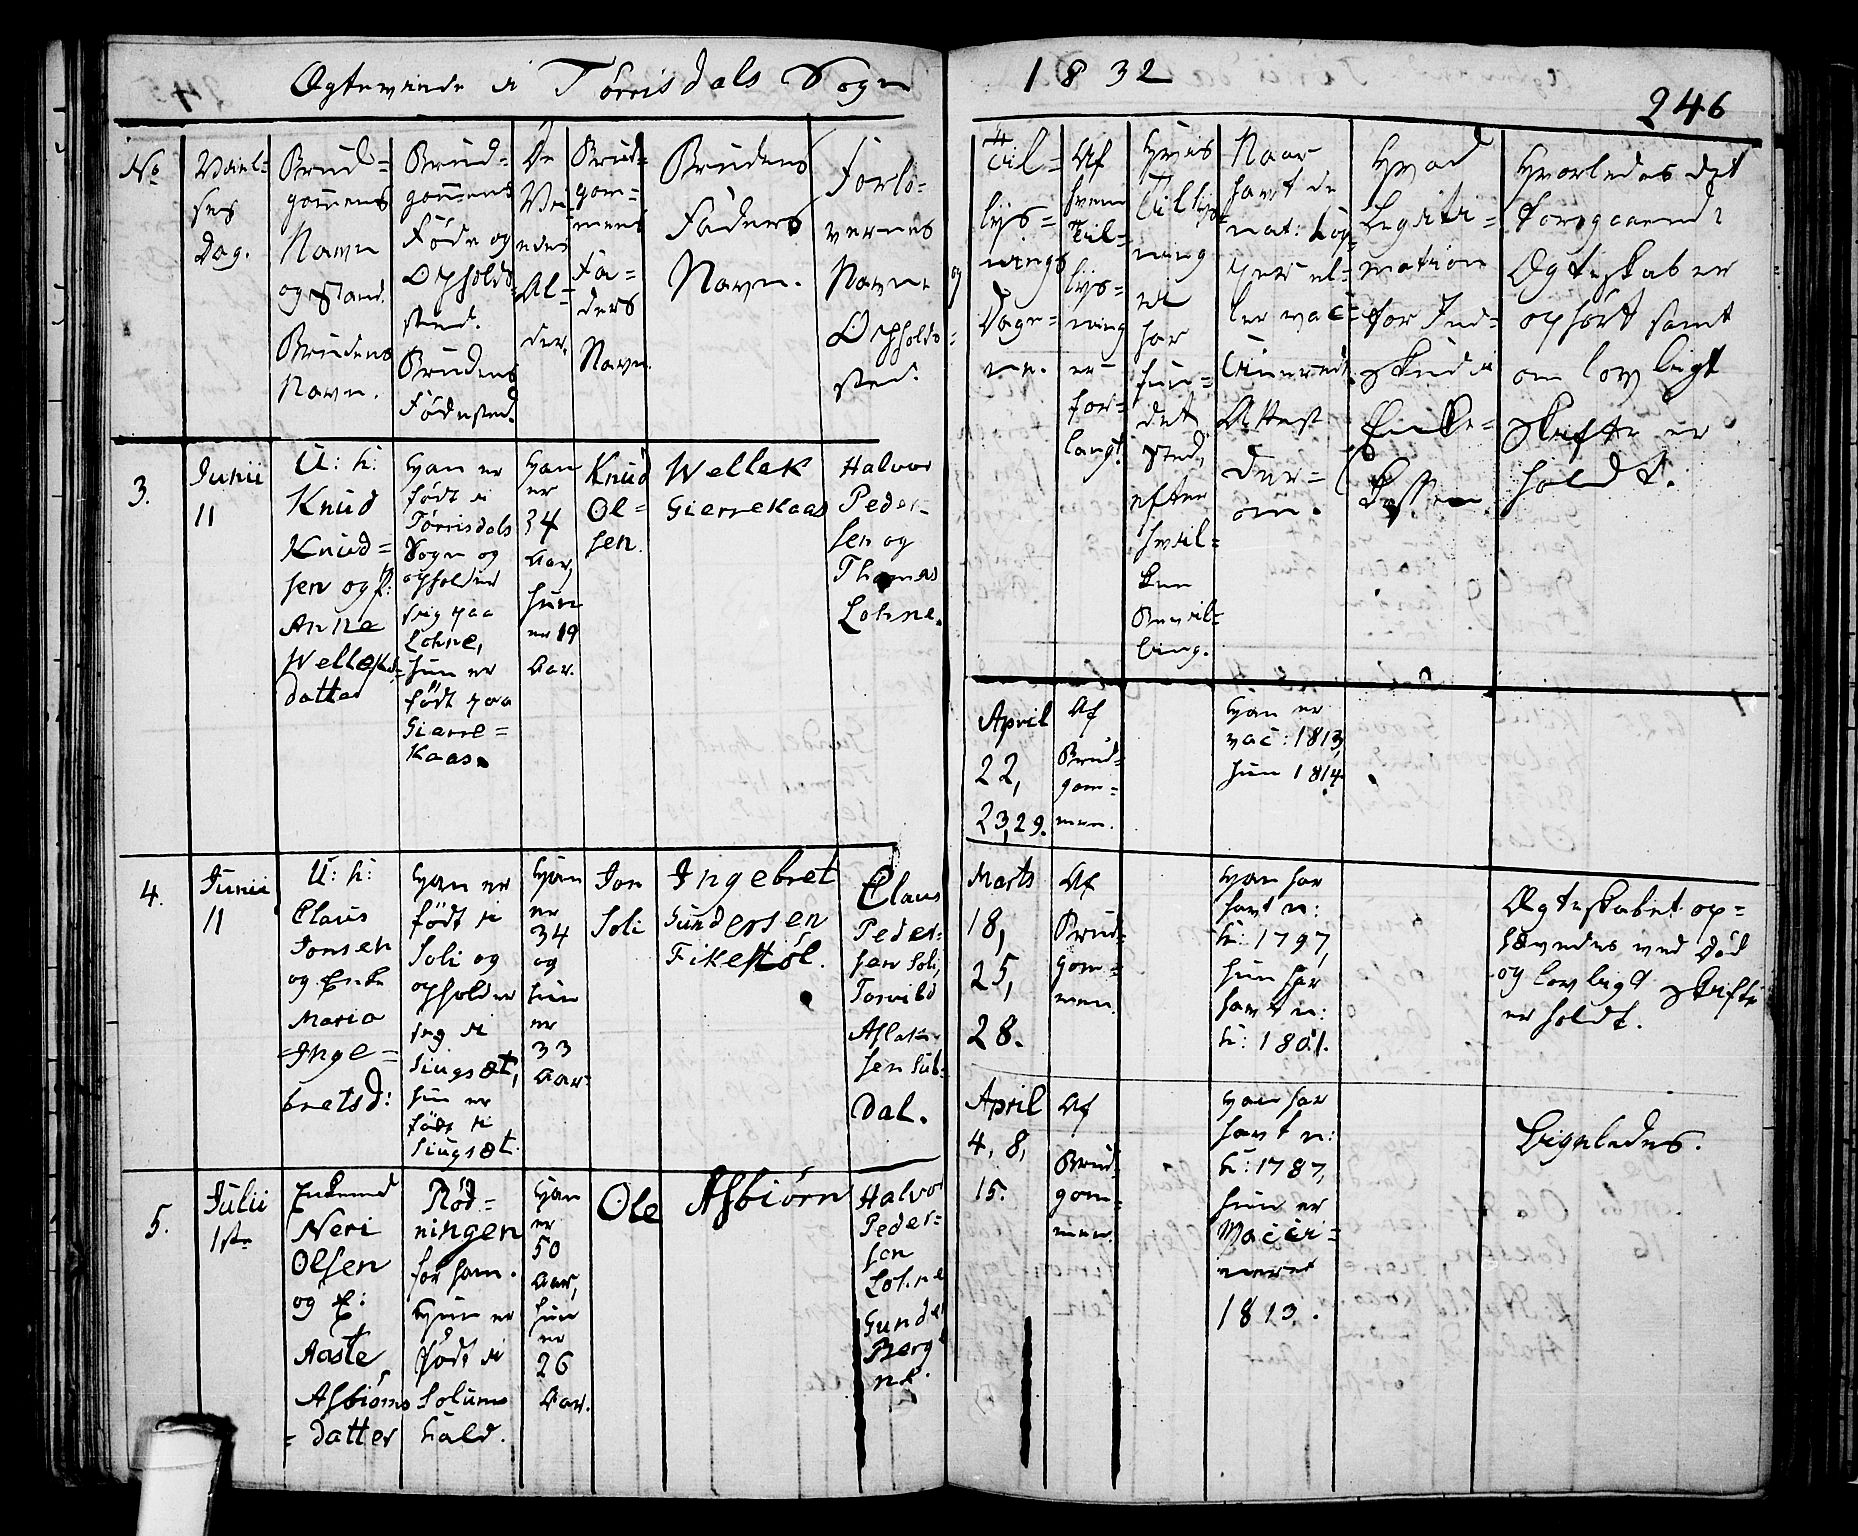 Ægteviede i Törrisdals Sogn
1832
246
No
Vielses
Dag.
Brud-
gommens
Navn
og Stand.
Brudens
Navn.
Brud-
gommens
Føde og
Opholds
sted.
Brudens
Fødested.
De
Vi-
edes
Al-
der.
Brud-
gom-
mens
Fa-
ders
Navn.
Brudens
Faders
Navn.
Forlo-
vernes
Navn og
Opholds-
sted.
Til-
lys-
nings
Dage-
ne.
Af
hvem
Til-
lys-
ning
er
for-
langt.
Hvis
Tillys-
ning
ei
har
fun-
det
Sted,
efter
hvil-
ken
Bevil-
ling.
Naar
havt de
nat: Kop-
per el-
ler vac-
cinerede.
Attest
der-
om.
Hvad
Legiti-
mation
for Ind-
skud i
Enke-
Kassen
Hvorledes det
foregaaende
Ægteskab er
ophört samt
om lovligt
Skifte er
holdt.
3.
Junii
11
U: k:
Knud
Knud-
sen og P:
Anne
Welleks-
datter
Han er
født i
Törrisdals
Sogn og
opholder
sig paa
Lohne,
hun er
født paa
Gierre-
kaas.
Han
er
34
Aar,
hun
er 19
Aar.
Knud
Ol-
sen.
Wellek
Gierrekaas
Halvor
Peder-
sen og
Thomas
Lohne.
April
22,
23,29.
Af
Brud-
gom-
men.
Han er
vac: 1813,
hun 1814
4.
Junii
11
U: k:
Claus
Jonsen
og Enke
Maria
Inge-
bretsd:
Han er
født i
Soli og
opholder
sig i
Siugsæt,
hun er
født i
Siugsæt.
Han
er
34
og
hun
er
33
Aar.
Jon
Soli
Ingebret
Gundersen
Fikestöl.
Claus
Peder-
sen Soli,
Torvild
Aslak-
sen Sub-
dal.
Marts
18,
25,
28.
Af
Brud-
gom-
men.
Han har
havt n:
k: 1797,
hun har
havt n:
k: 1801.
Ægteskabet op-
hævedes ved Død
og lovligt Skifte
er holdt.
5.
Julii
1ste
Enkemd
Neri
Olsen
og P:
Aaste
Asbiörns
-datter
Röd-
ningen
for ham.
Hun er
født i
Solums
hald.
Han
er
50
Aar,
hun
er
26
Aar.
Ole
Asbiörn
Halvor
Peder-
sen
Lohne
Gunder
Berge
ne.
April
4, 8,
15.
Af
Brud-
gom-
men.
Han har
havt n:
k: 1787,
hun er
Vacci-
neret
1813.
Ligeledes.